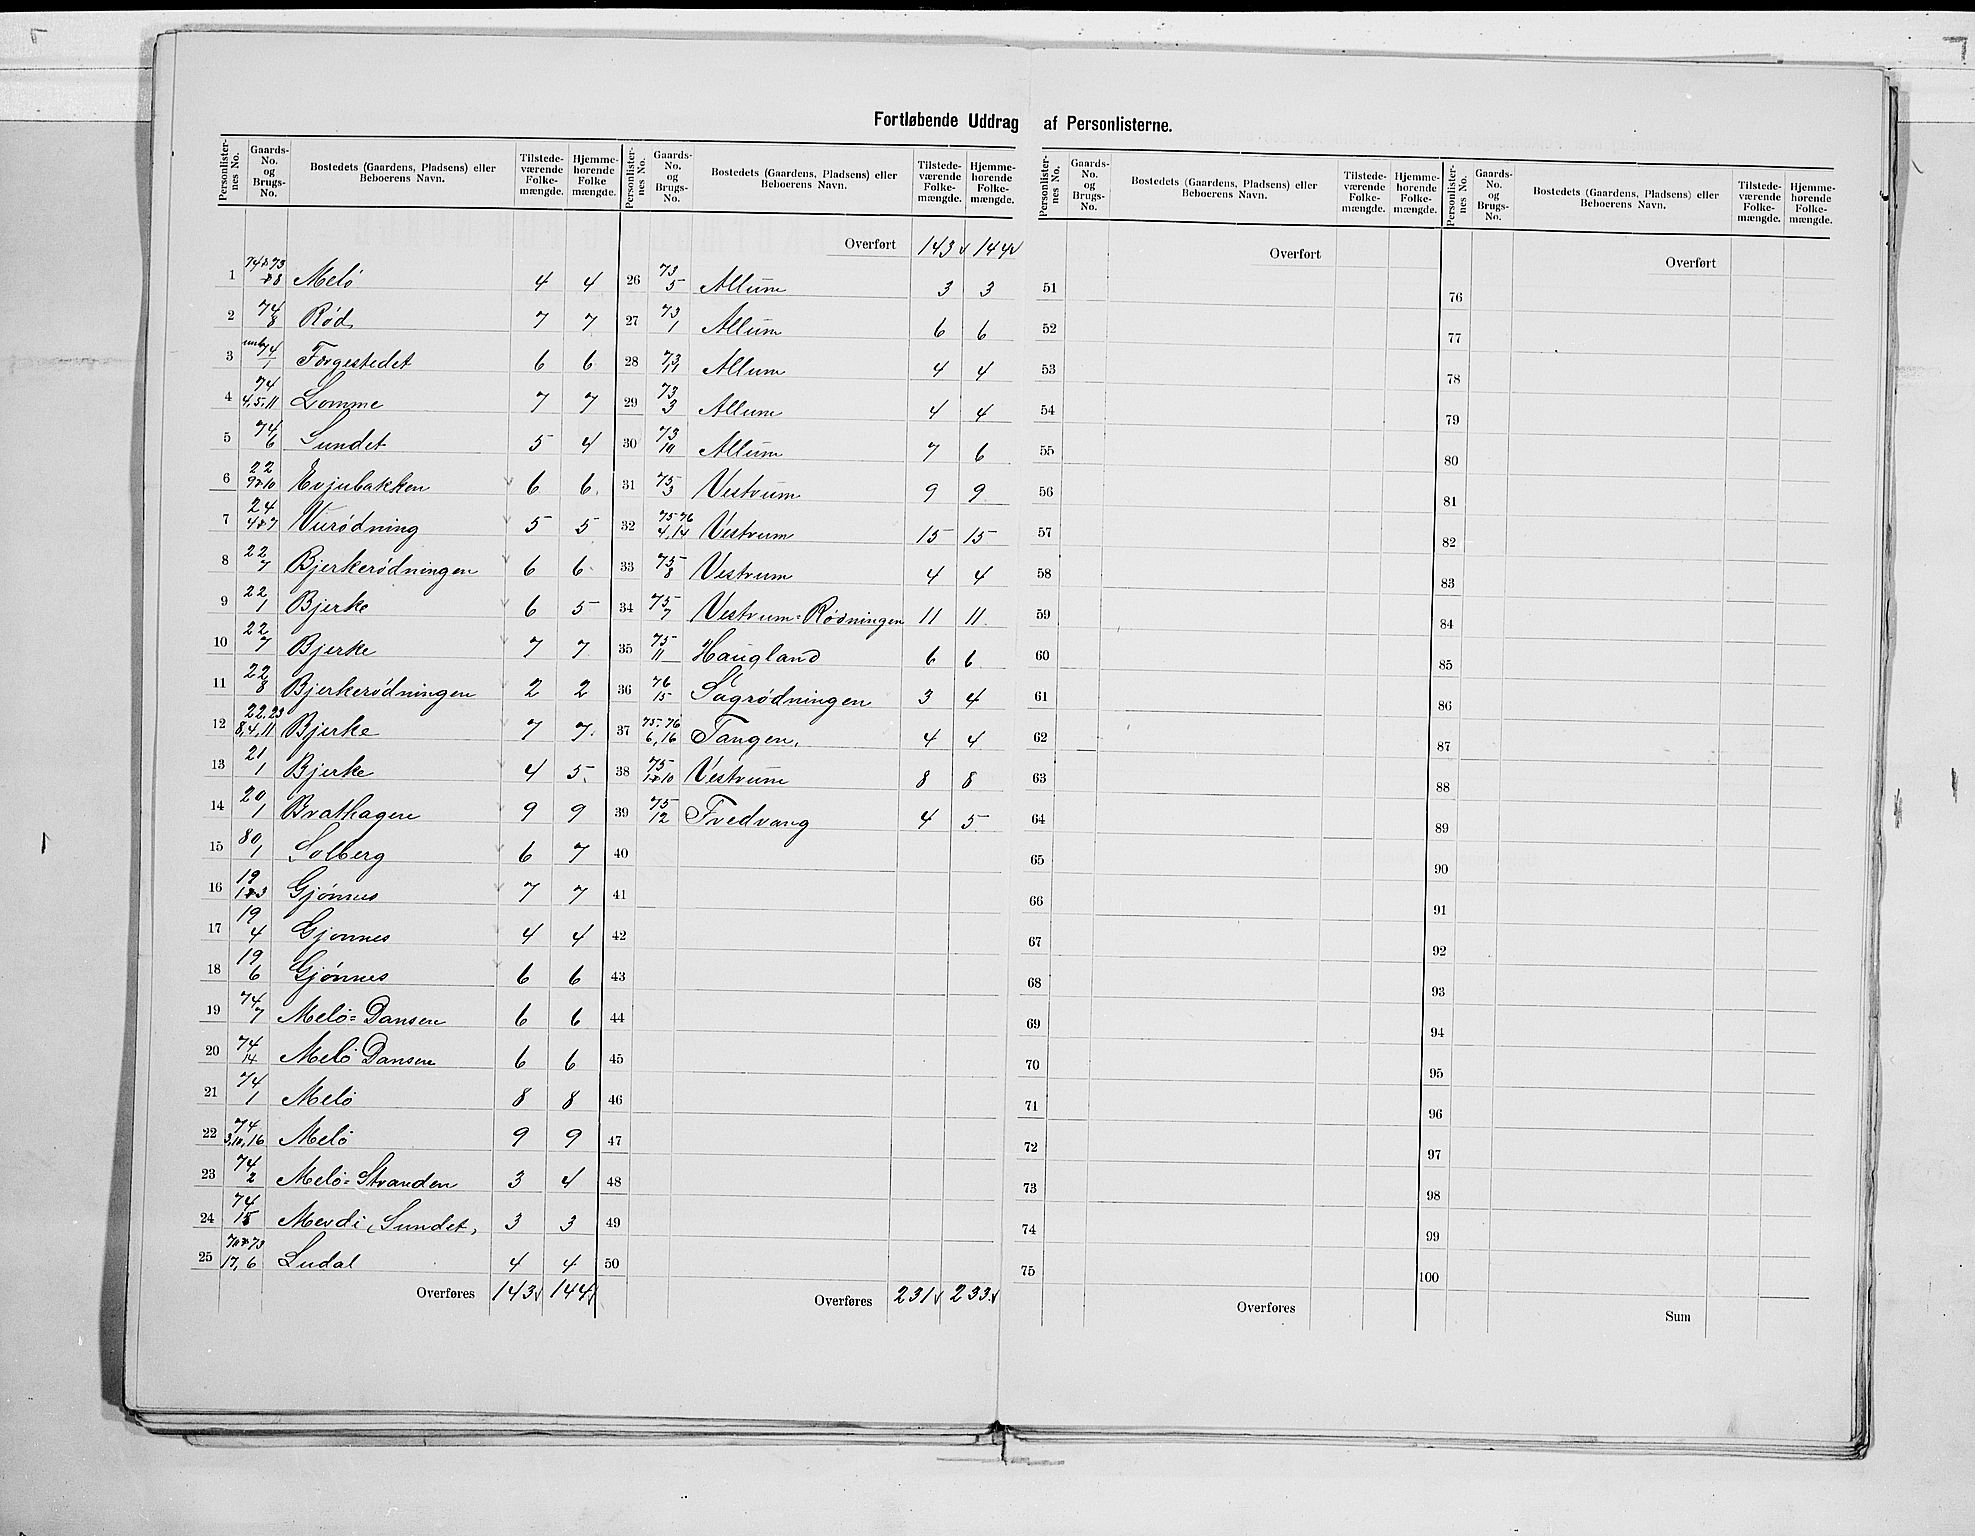 Fortløbende Uddrag af Personlisterne.
Personlister-nes No. | Gaards-No. og Brugs-No. | Bostedets (Gaardens, Pladsens) eller Beboerens Navn. | Tilstede-værende Folke-mængde. | Hjemme-hørende Folke mængde.
1 | 74 & 73 & 8 | Melö | 4 | 4
2 | 74 8 | Rød | 7 | 7
3 | 74 1 | Forgestedet | 6 | 6
4 | 74 4,5,11 | Lomme | 7 | 7
5 | 74 6 | Sundet | 5 | 4
6 | 22 9&10 | Evjubakken | 6 | 6
7 | 24 4&7 | Vurödning | 5 | 5
8 | 22 7 | Bjerkerödningen | 6 | 6
9 | 22 1 | Bjerke | 6 | 5
10 | 22 7 | Bjerke | 7 | 7
11 | 22 8 | Bjerkerödningen | 2 | 2
12 | 22,23 8,4,11 | Bjerke | 7 | 7
13 | 21 1 | Bjerke | 4 | 5
14 | 20 1 | Brathagen | 9 | 9
15 | 80 1 | Solberg | 6 | 7
16 | 19 1&3 | Gjönnes | 7 | 7
17 | 19 4 | Gjonnes | 4 | 4
18 | 19 6 | Gjönnes | 6 | 6
19 | 74 7 | Melö=Dansen | 6 | 6
20 | 74 14 | Melö Dansen | 6 | 6
21 | 74 1 | Melö | 8 | 8
22 | 74 3,10,16 | Melö | 9 | 9
23 | 74 2 | Melö=Stranden | 3 | 4
24 | 74 | Merdi, Sundet, | 3 | 3
25 | 17,6 | Ludal | 4 | 4
Overføres | 143 | 144
Personlister-nes No. | Gaards-No. og Brugs-No. | Bostedets (Gaardens, Pladsens) eller Beboerens Navn. | Tilstede-værende Folke-mængde. | Hjemme-hørende Folke-mængde.
Overført | 143 | 144
26 | 73 5 | Allum | 3 | 3
27 | 73 1 | Allum | 6 | 6
28 | 73 | Allum | 4 | 4
29 | 73 3 | Allum | 4 | 4
30 | 73 10 | Allum | 7 | 6
31 | 75 3 | Vestrum | 9 | 9
32 | 75 76 4,14 | Vestrum | 15 | 15
33 | 75 8 | Vestrum | 4 | 4
34 | 75 7 | Vestrum=Rödningen | 11 | 11
35 | 75 11 | Haugland | 6 | 6
36 | 76 15 | Sagrödningen | 3 | 4
37 | 75,76 6,16 | Tangen, | 4 | 4
38 | 75 1&10 | Vestrum | 8 | 8
39 | 75 12 | Fredvang | 4 | 5
40
41
42
43
44
45
46
47
48
49
50
Overføres | 231 | 233
Personlister-nes No. | Gaards-No. og Brugs-No. | Bostedets (Gaardens, Pladsens) eller Beboerens Navn. | Tilstede-værende Folke-mængde. | Hjemme-hørende Folke-mængde.
Overført
51
52
53
54
55
56
57
58
59
60
61
62
63
64
65
66
67
68
69
70
71
72
73
74
75
Overføres
Personlister-nes No. | Gaards-No. og Brugs-No. | Bostedets (Gaardens, Pladsens) eller Beboerens Navn. | Tilstede-værende Folke-mængde. | Hjemme-hørende Folke-mængde.
Overført
76
77
78
79
80
81
82
83
84
85
86
87
88
89
90
91
92
93
94
95
96
97
98
99
100
Sum